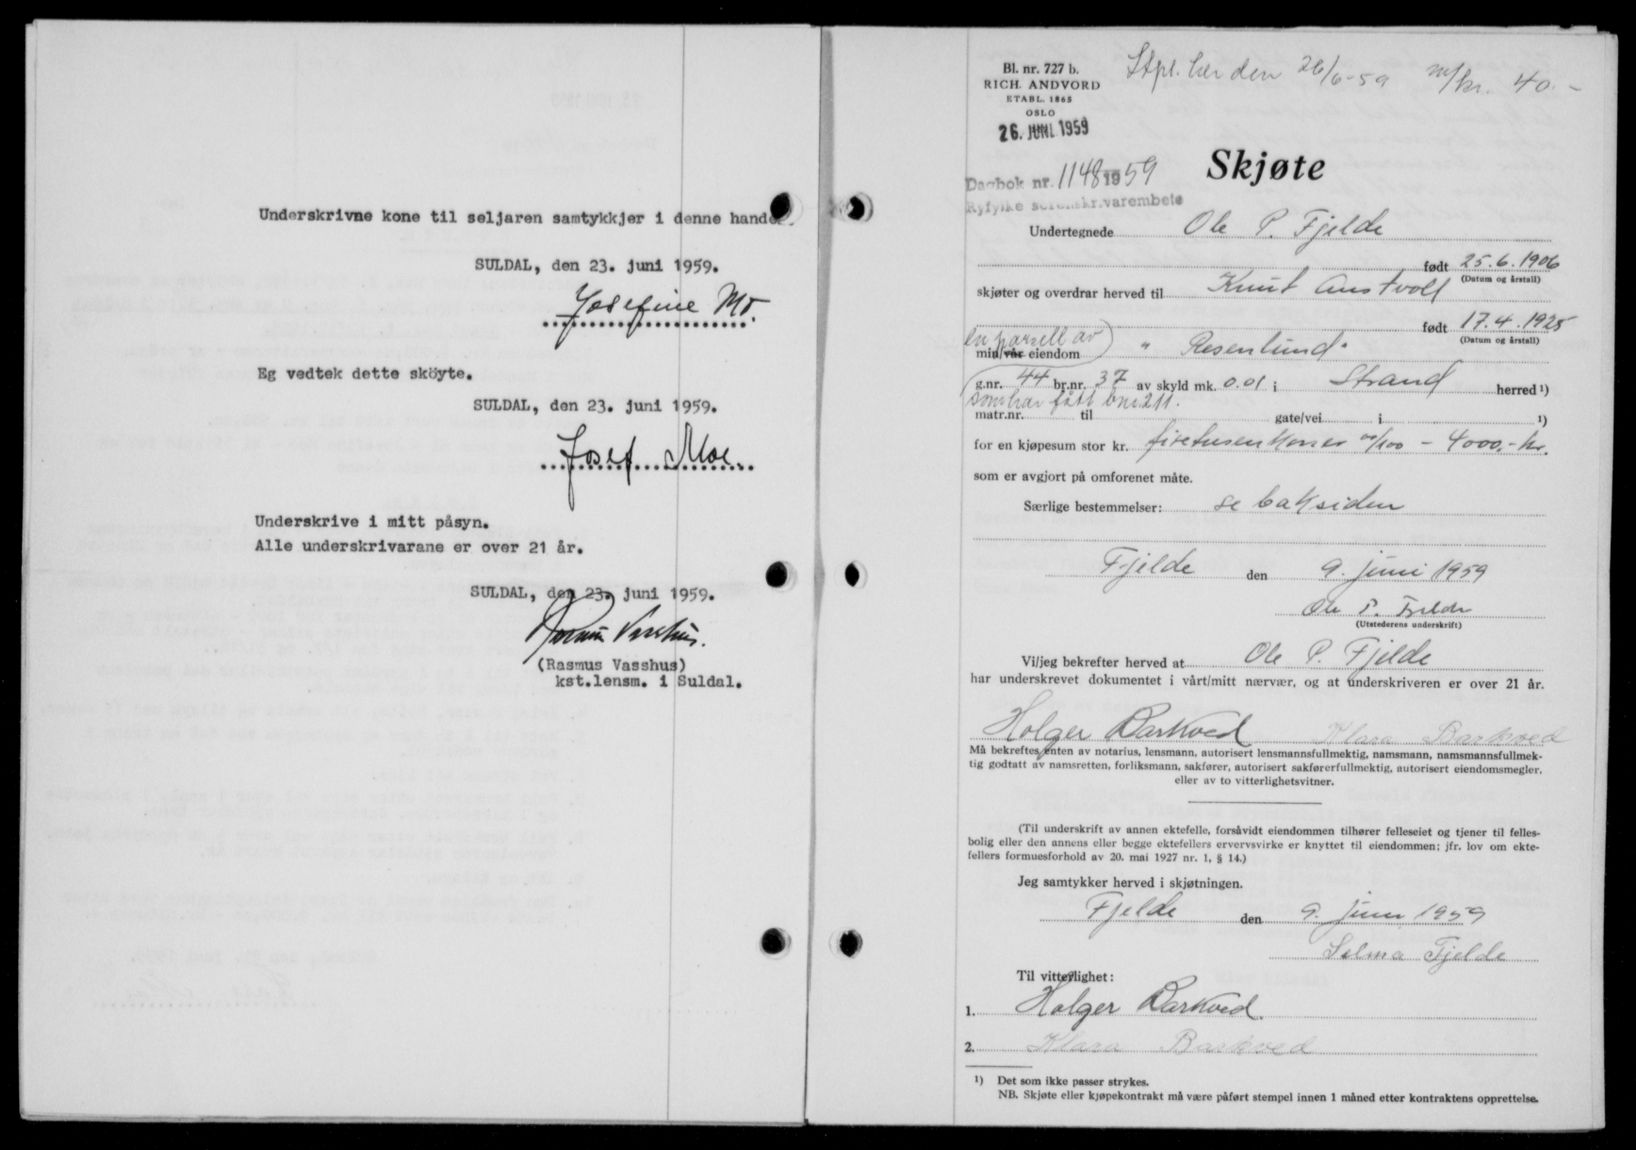 Underskrivne kone til seljaren samtykkjer i denne handel.
SULDAL, den 23. juni 1959.
Josefine Mo.
Eg vedtek dette sköyte.
SULDAL, den 23. juni 1959.
Josef Moe
Underskrive i mitt påsyn.
Alle underskrivarane er over 21 år.
SULDAL, den 23. juni 1959.
Rasmus Vasshus.
(Rasmus Vasshus)
kst.lensm. i Suldal.
Stpl. her den 26/6-59 m/kr. 40.-
Bl. nr. 727 b.
RICH. ANDVORD
ETABL. 1865
OSLO
26. JUNI 1959
Skjøte
Dagbok nr. 1148 1959
Ryfylke sorenskrivarembete
Undertegnede Ole P. Fjelde
født 25.6.1906
(Datum og årstall)
skjøter og overdrar herved til Knut Austvoll
født 17.4.1925
(Datum og årstall)
en parsell av
min/vår eiendom "Rosenlund"
g.nr. 44 br.nr. 37 av skyld mk. 0.01 i Strand herred ¹)
som har fått bnr. 211.
matr.nr. til gate/vei i ¹)
for en kjøpesum stor kr. firetusenkroner 00/100 - 4000,- kr.
som er avgjort på omforenet måte.
Særlige bestemmelser: se baksiden
Fjelde den 9. juni 1959
Ole P. Fjelde
(Utstederens underskrift)
Vi/jeg bekrefter herved at Ole P. Fjelde
har underskrevet dokumentet i vårt/mitt nærvær, og at underskriveren er over 21 år.
Holger Barkved Klara Barkved
Må bekreftes enten av notarius, lensmann, autorisert lensmannsfullmektig, namsmann, namsmannsfullmek-
tig godtatt av namsretten, forliksmann, sakfører, autorisert sakførerfullmektig, autorisert eiendomsmegler,
eller av to vitterlighetsvitner.
(Til underskrift av annen ektefelle, forsåvidt eiendommen tilhører felleseiet og tjener til felles-
bolig eller den annens eller begge ektefellers ervervsvirke er knyttet til eiendommen; jfr. lov om ekte-
fellers formuesforhold av 20. mai 1927 nr. 1, § 14.)
Jeg samtykker herved i skjøtningen.
Fjelde den 9. juni 1959
Selma Fjelde
Til vitterlighet:
1. Holger Barkved.
2. Klara Barkved
¹) Det som ikke passer strykes.
NB. Skjøte eller kjøpekontrakt må være påført stempel innen 1 måned etter kontraktens opprettelse.